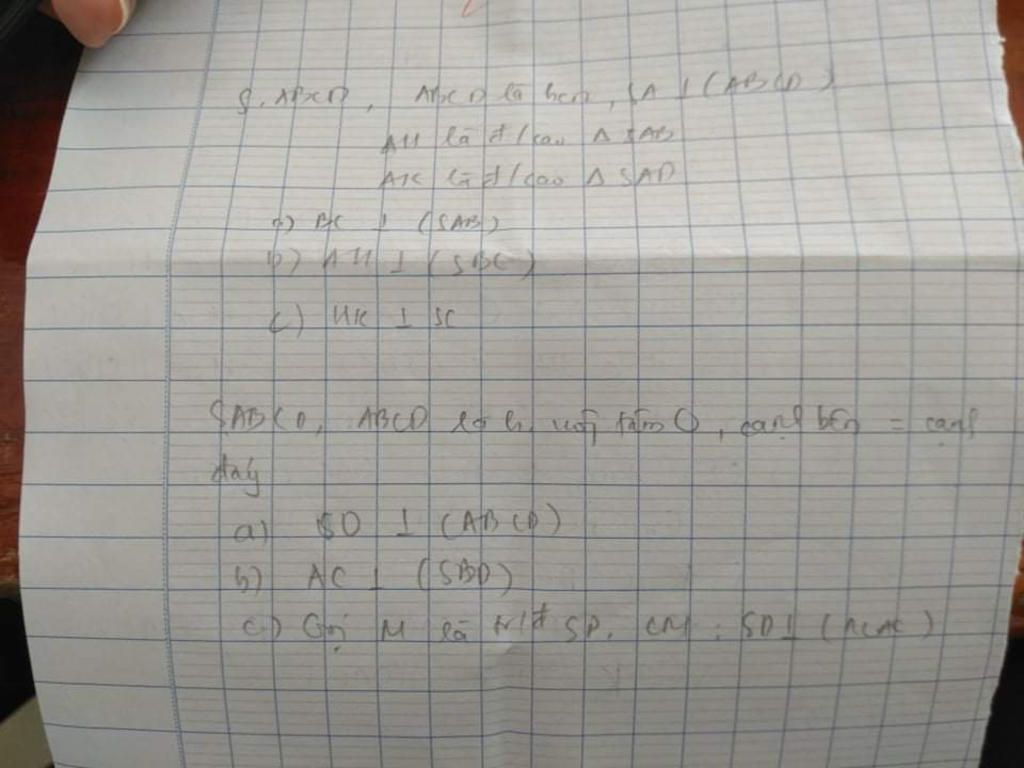 S.ABCD, ABCD là hcn, SA ⊥ (ABCD)
AH là đ/cao Δ SAB
AK là đ/cao Δ SAD
a) BC ⊥ (SAB)
b) AH ⊥ (SBC)
c) HK ⊥ SC
SABCD, ABCD là h. vuôg tâm O, cạnh bên = cạnh
đáy
a) SO ⊥ (ABCD)
b) AC ⊥ (SBD)
c) Gọi M là tr/đ SD. CM: SD ⊥ (MAC)